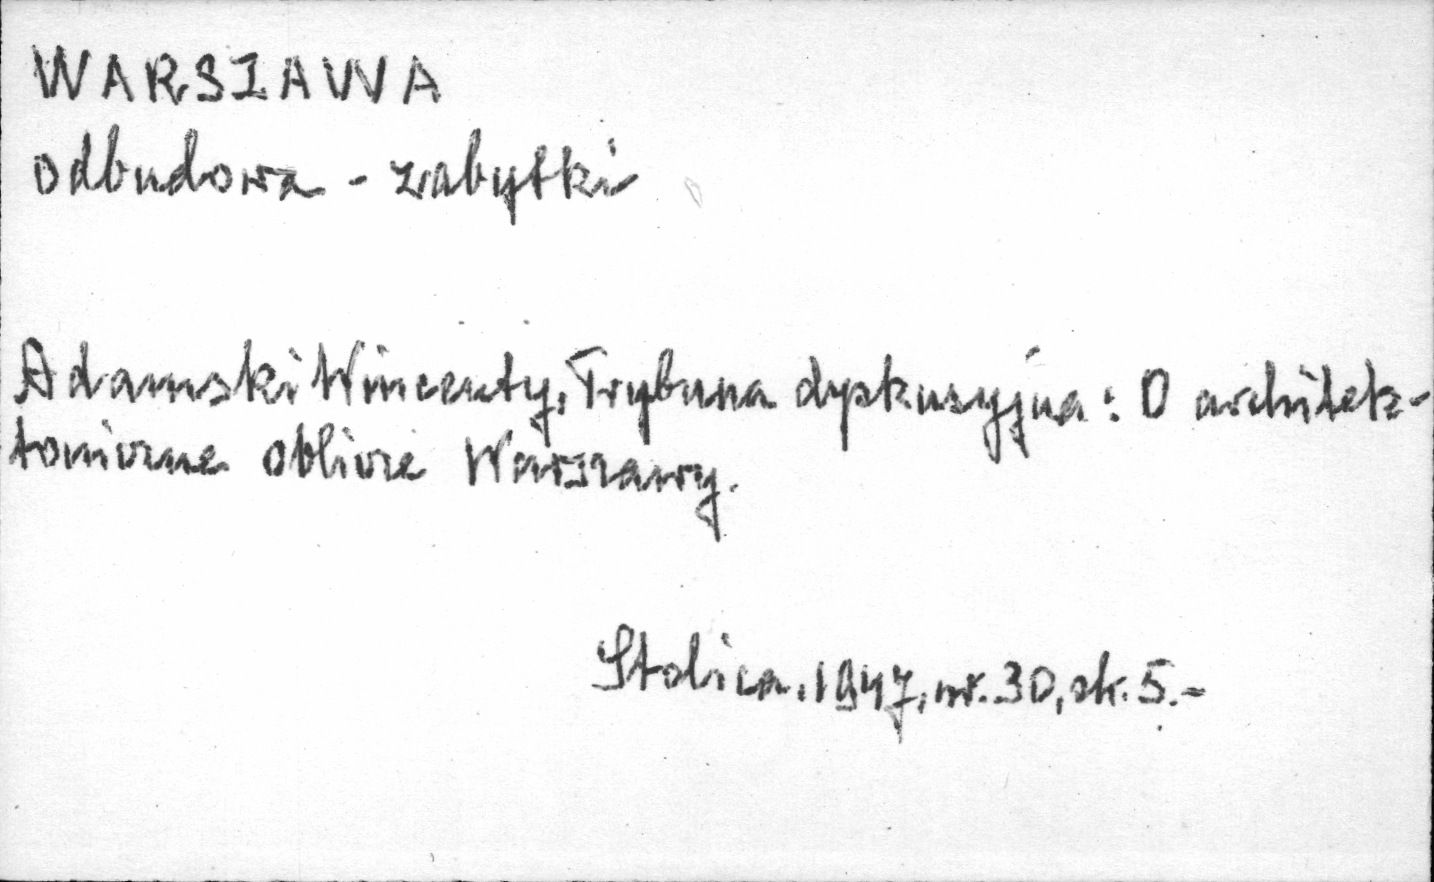 WARSZAWA
odbudowa - zabytki
Adamski Wincenty, Trybuna dyskusyjna: O architek-
toniczne oblicze Warszawy.
Stolica. 1947, nr. 30, str. 5.-